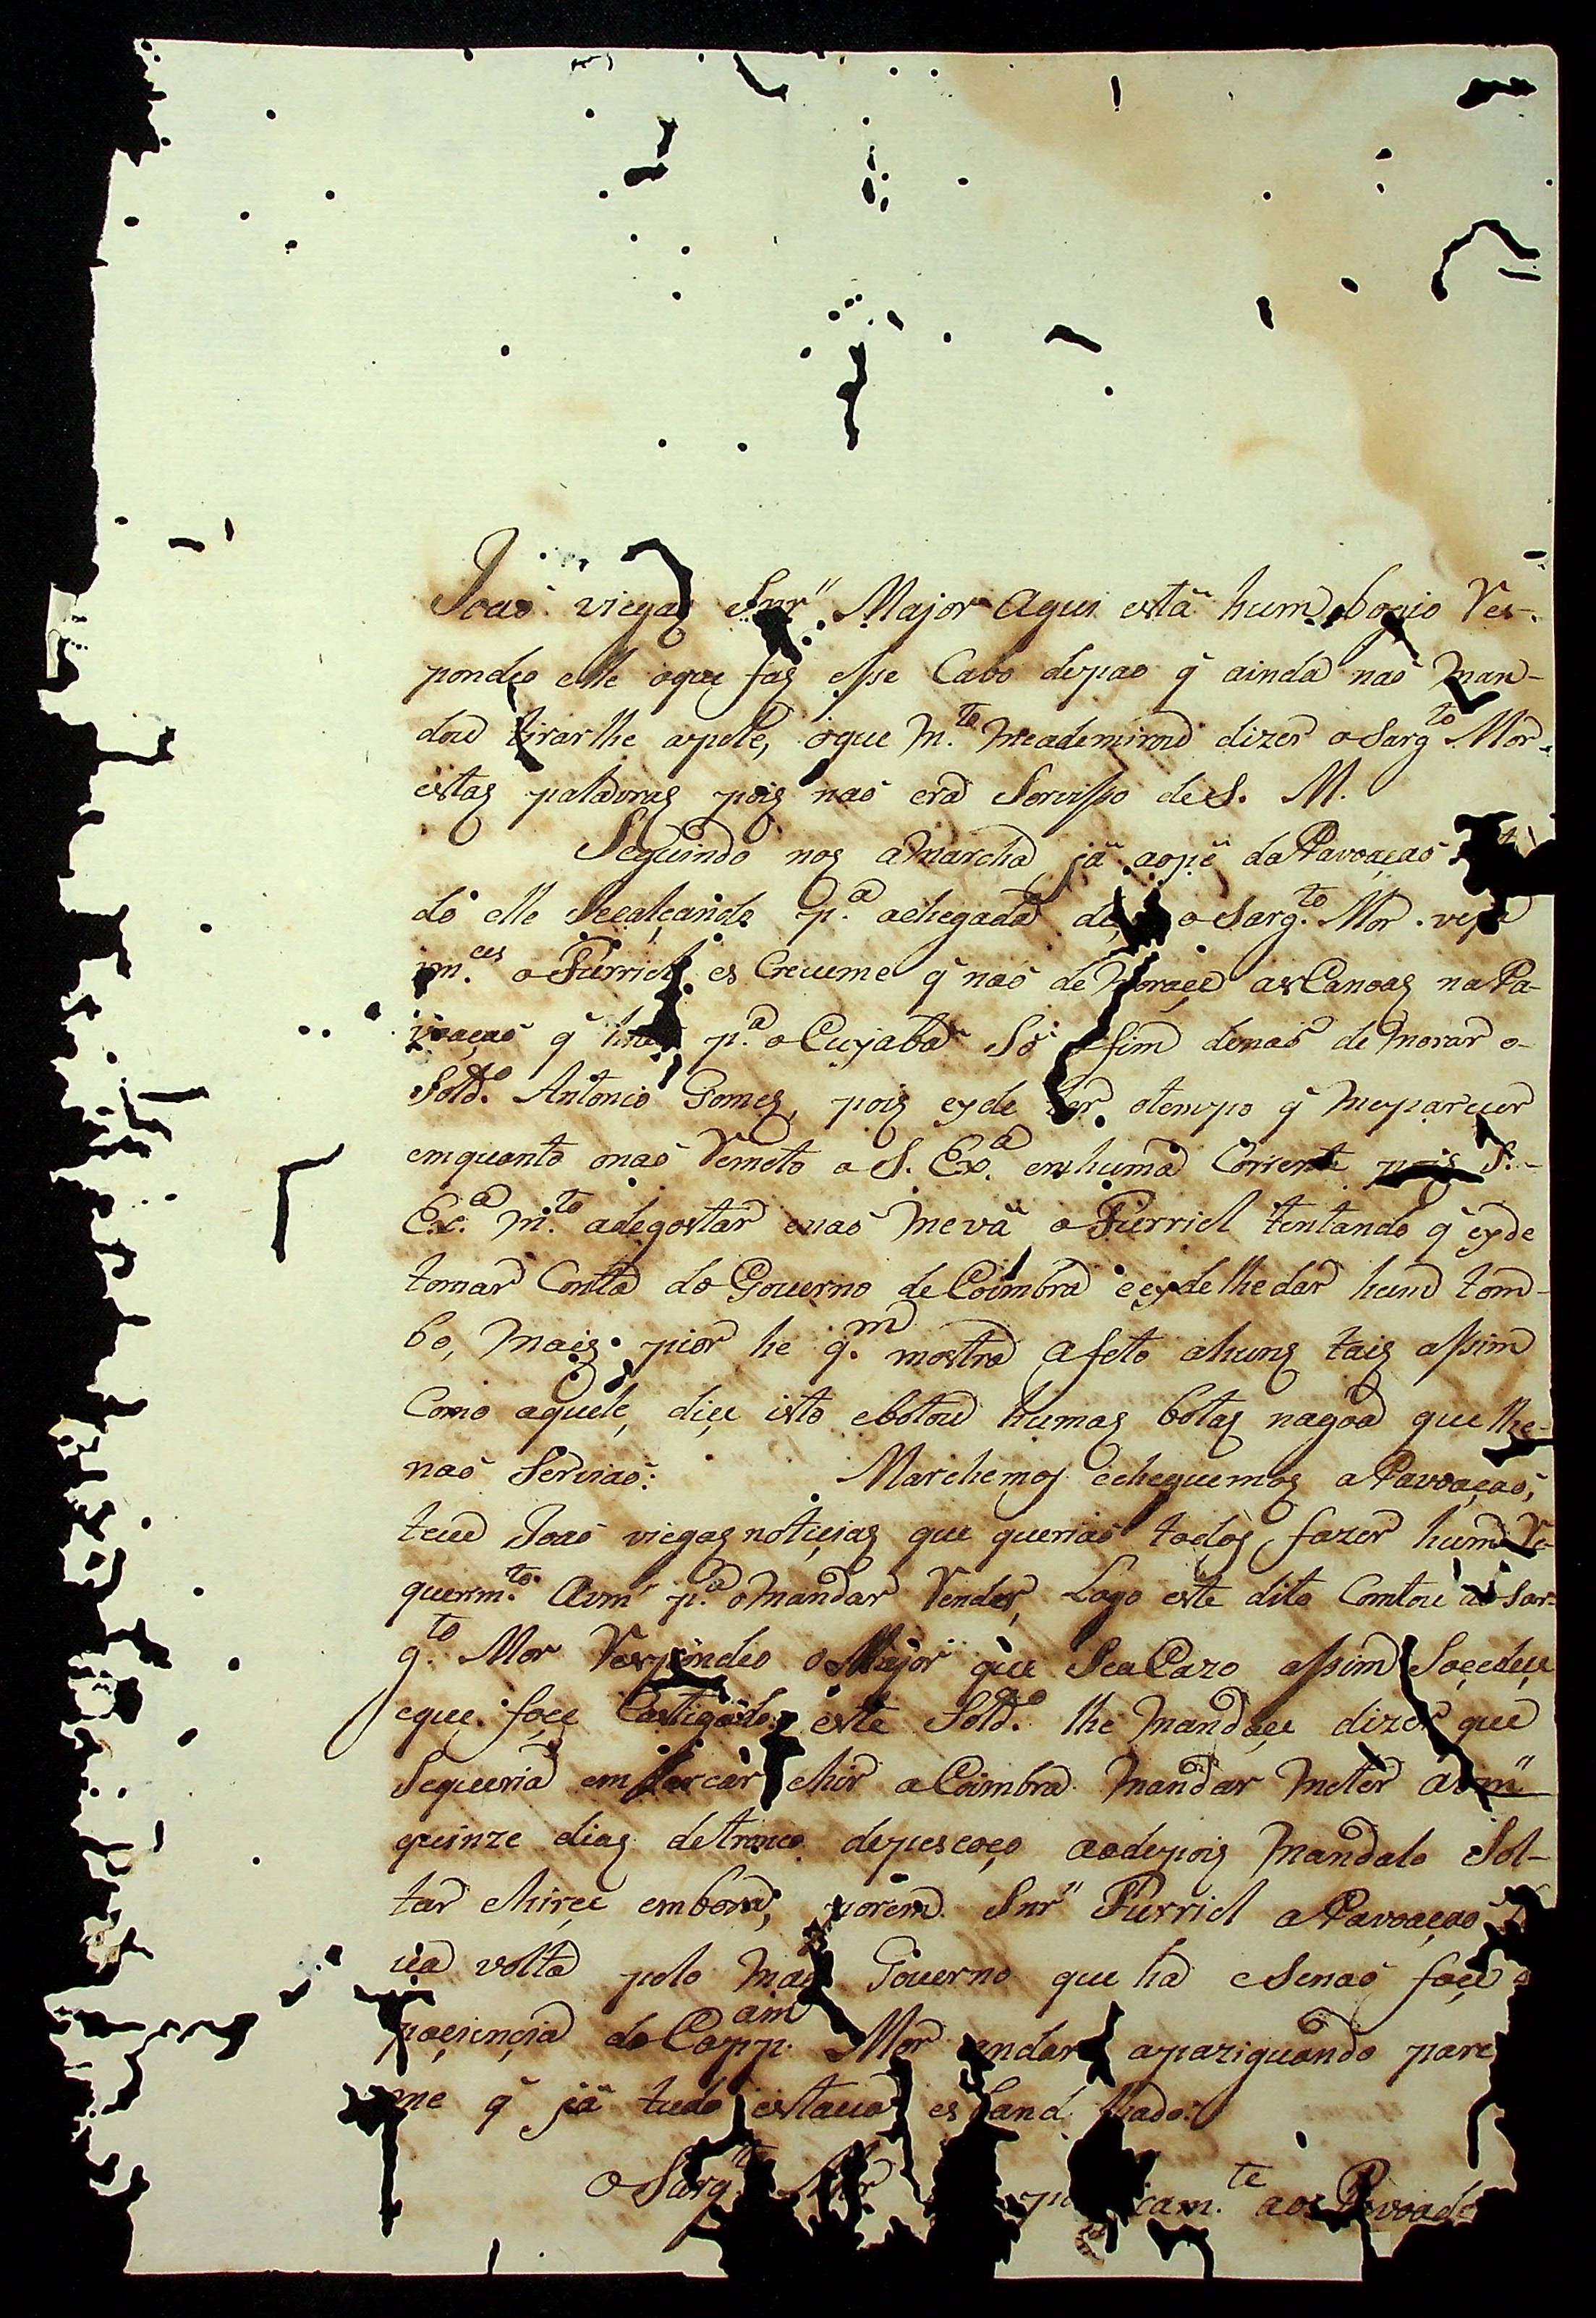 Joaõ viegas Snr" Major Aqui está hum bogio Res-
pondeo elle oque fas esse Cabo depao q̃ ainda naõ man-
dou tirarlhe apele, oque m.to meademirou dizer o Sarg.to Mor
estas palavras pois naõ era Servisso de S. M.
Seguindo nos amarcha já aopé da Pavoaçaõ
do elle Secalçando p.a achegada o Sarg.to Mor
m.ces o Furriel es Creveme q̃ naõ demoraçe as Canoas na Pa-
voaçaõ q̃ p.a o Cuyabá Só afim denaõ demorar o
Sold.o Antonio Gomes, pois eyde ter otempo q̃ meparecer
emquanto onaõ Remeto a S. Ex.a em huma Corrente pois S.
Ex.a m.to adegostar enaõ mevá o Furriel tentando q̃ eyde
tomar Conta do Governo de Coimbra e eydelhedar hum tom-
bo, mais pior he q.m mostra afeto ahuns tais assim
Como aquele, diçe isto ebotou humas botas nagoa que lhe
naõ Serviaõ: Marchemos echeguemos a Pavoaçaõ,
teve Joaõ viegas notiçias que queriaõ todos fazer hum Re-
querim.to Avm" p.a omandar Render, Logo este dito Contou ao Sar-
g.to Mor Respondeo o Major que SeaCazo assim Soçedeçe
eque foçe Castigado este Sold.o lhe mandaçe dizer que
Sequeria embarcar ehir a Coimbra mandar meter avm"
quinze dias detronco depescoço aodepois mandalo Sol-
tar ehirçe embora, porem Snr" Furriel a Pavoaçaõ
volta pelo mao Governo que ha eSenaõ foçe a
paçiençia do Capp.am Mor andar apaziguando pare
me q̃ já tudo estava
O Sarg.to Mor cam.te aos Povoado